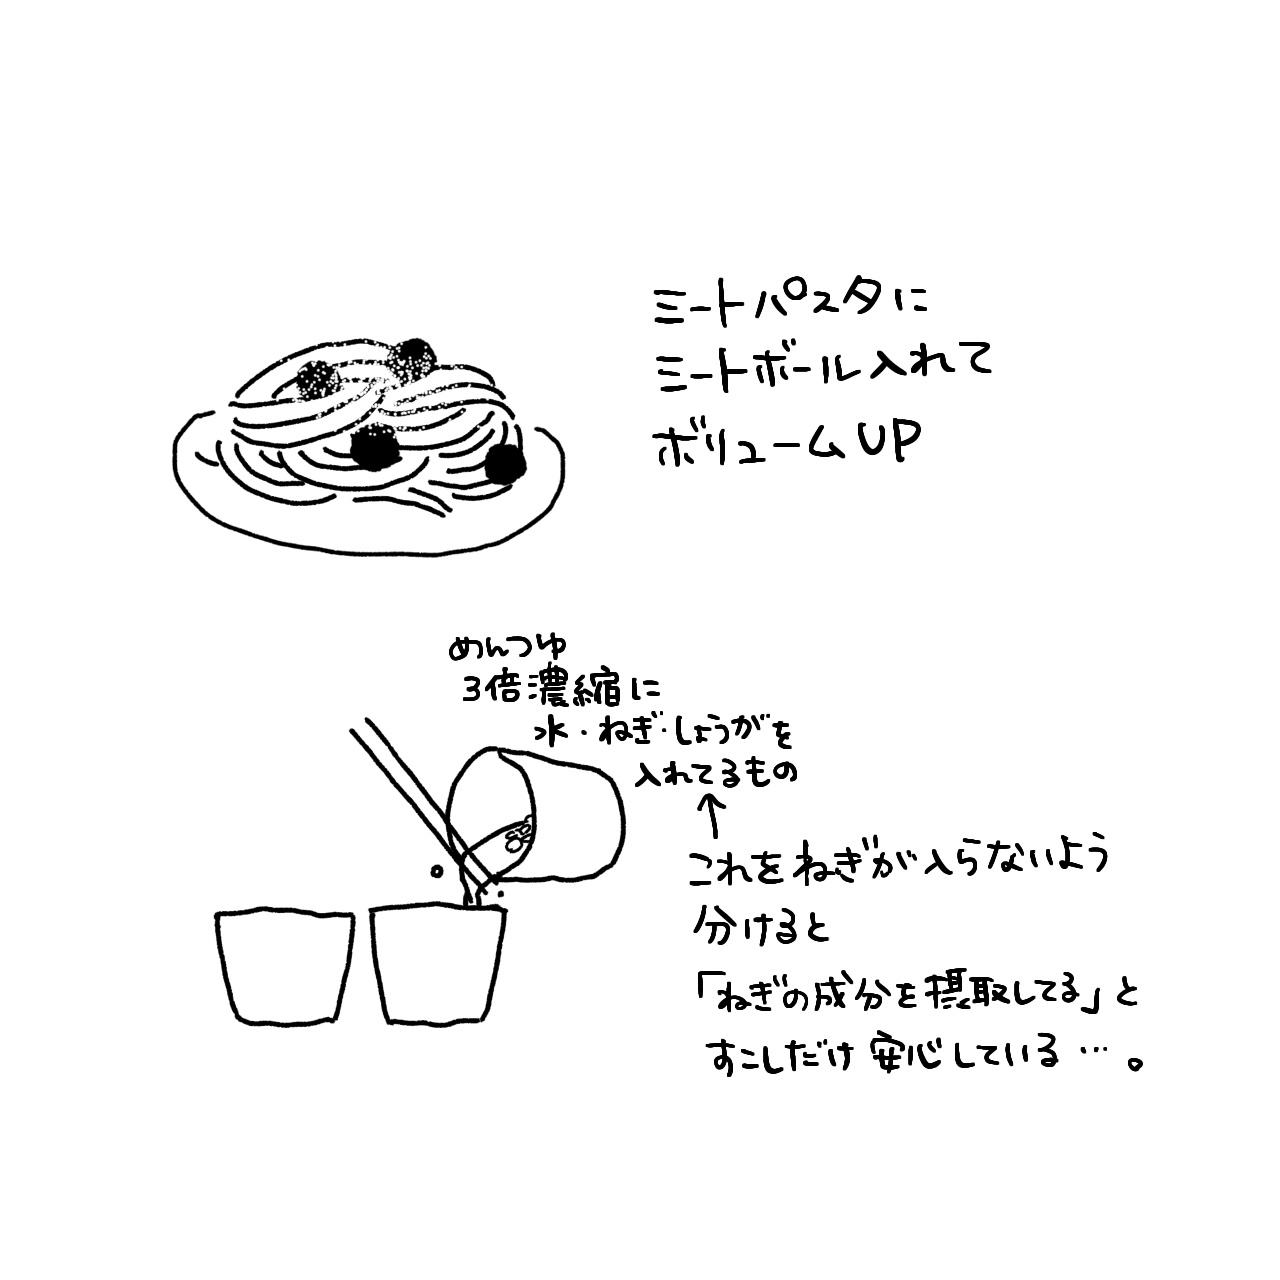 ミートパスタに
ミートボール入れて
ボリュームUP
めんつゆ
3倍濃縮に
水・ねぎ・しょうがを
入れてるもの
↑
これをねぎが入らないよう
分けると
「ねぎの成分を摂取してる」と
すこしだけ安心している…。